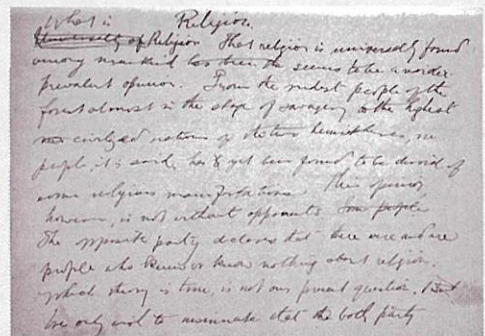 What is Religion.
University of Religion That religion is universally found
among mankind has been the seems to be a
prevalent opinion. From the rudest people of the
forest almost in the state of savagery to the highest
civilized nations of the two hemispheres, no
people, it is said, has yet been found to be devoid of
some religious manifestations. This opinion
however, is not without opponents Some people
The opposite party declares that there were and are
people who knew or know nothing about religion.
Which theory is true, is not our present question. But
we only wish to insinuate that the both party